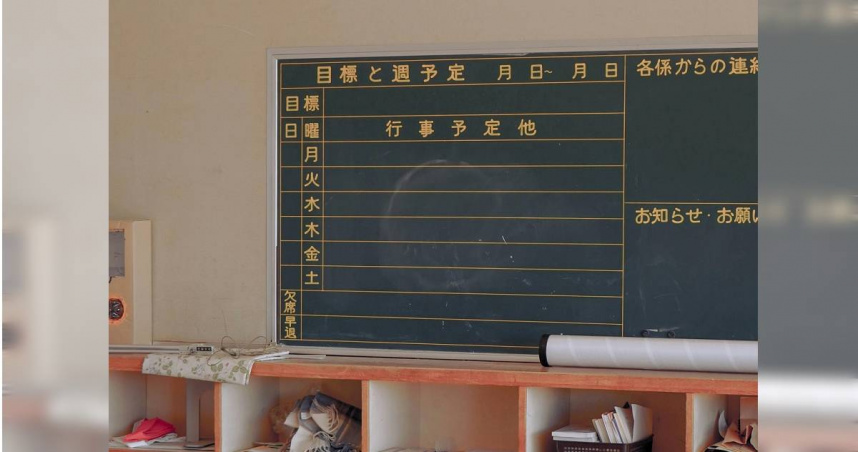 目標と週予定 月 日~ 月 日
目標
日 曜 行事予定他
月
火
水
木
金
土
欠席早退
各係からの連絡
お知らせ・お願い